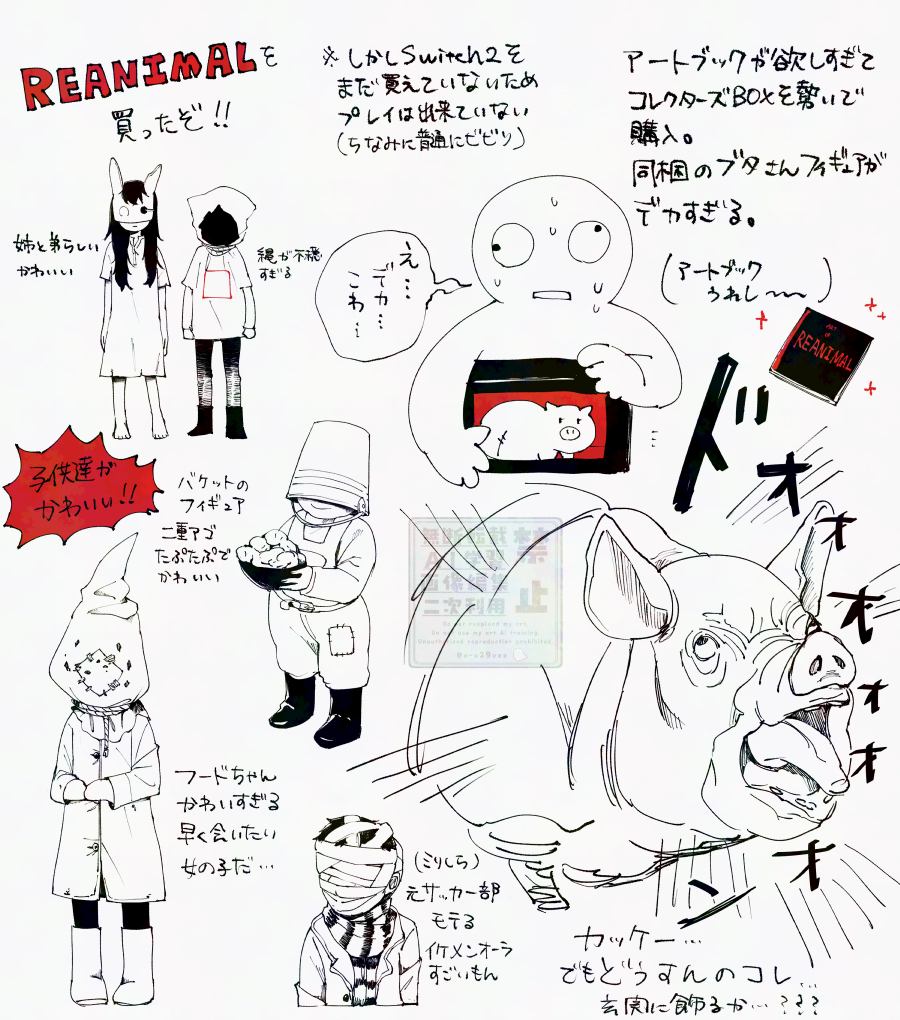 REANIMALを
買ったぞ!!
※しかしSwitch2を
まだ買えていないため
プレイは出来ていない
(ちなみに普通にビビリ)
アートブックが欲しすぎて
コレクターズBOXを勢いで
購入。
同梱のブタさんフィギュアが
デカすぎる。
(アートブック
うれし〜〜)
姉と弟らしい
かわいい
縄が不穏
すぎる
え…
デカ…
こわ…
ART
OF
REANIMAL
ドォ
オ
オ
オ
オ
オ
ン
子供達が
かわいい!!
バケットの
フィギュア
二重アゴ
たぷたぷで
かわいい
無断転載
AI学習
画像編集
二次利用
禁止
Do not reupload my art.
Do not use my art AI training
Unauthorized reproduction prohibited
フードちゃん
かわいすぎる
早く会いたい
女の子だ…
(ミリしら)
元サッカー部
モテる
イケメンオーラ
すごいもん
カッケー…
でもどうすんのコレ…
玄関に飾るか…???